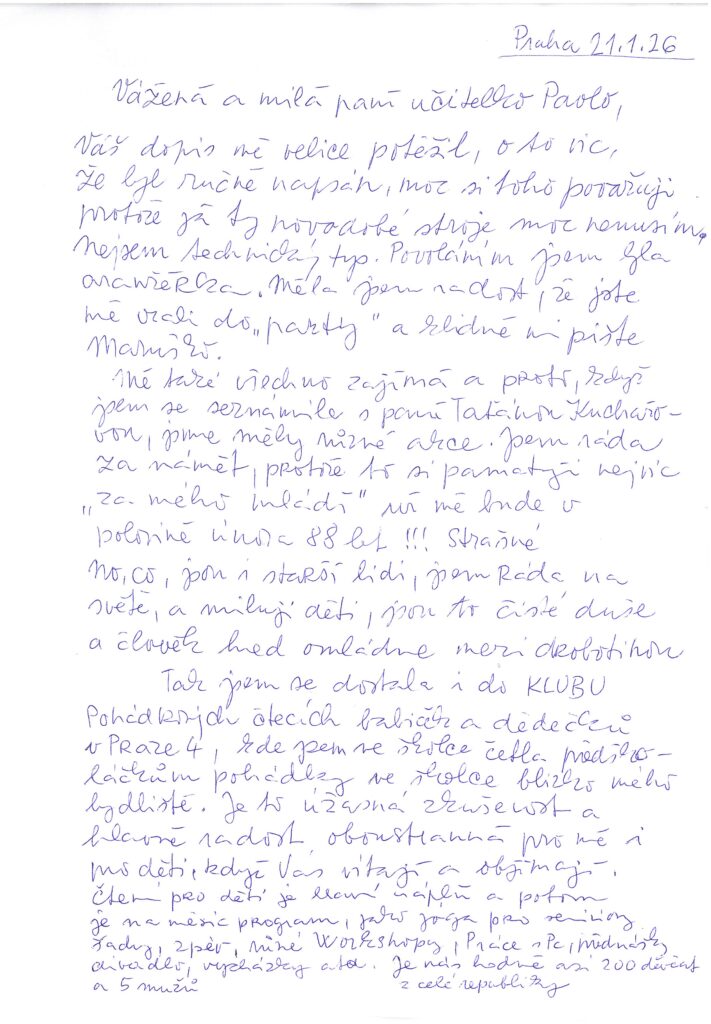 Praha 21.1.26
Vážená a milá paní učitelko Pavlo,
Váš dopis mě velice potěšil, o to víc,
že byl ručně napsán, moc si toho považuji
protože já ty novodobé stroje moc nemusím,
nejsem technický typ. Povoláním jsem byla
aranžérka. Měla jsem radost, že jste
mě vzali do „party" a klidně mi pište
Maruško.
Mě také všechno zajímá a proto, když
jsem se seznámila s paní Taťánou Kuchařo-
vou, jsme měly různé akce. Jsem ráda
za námět, protože to si pamatuji nejvíc
„za mého mládí" už mě bude v
polovině února 88 let !!! Strašné
No, co, jsou i starší lidi, jsem Ráda na
světě, a miluji děti, jsou to čisté duše
a člověk hned omládne mezi drobotinou
Tak jsem se dostala i do KLUBU
Pohádkových čtecích babiček a dědečků
v Praze 4, kde jsem ve školce četla předško-
láčkům pohádky ve školce blízko mého
bydliště. Je to úžasná zkušenost a
hlavně radost oboustranná pro mě i
pro děti, když Vás vítají a objímají.
Čtení pro děti je hlavní náplň a potom
je na měsíc program, jako jóga pro seniory
řady, zpěv, různé Workshopy, Práce s Pc, přednášky
divadlo, vycházky atd. Je nás hodně asi 200 děvčat
a 5 mužů z celé republiky